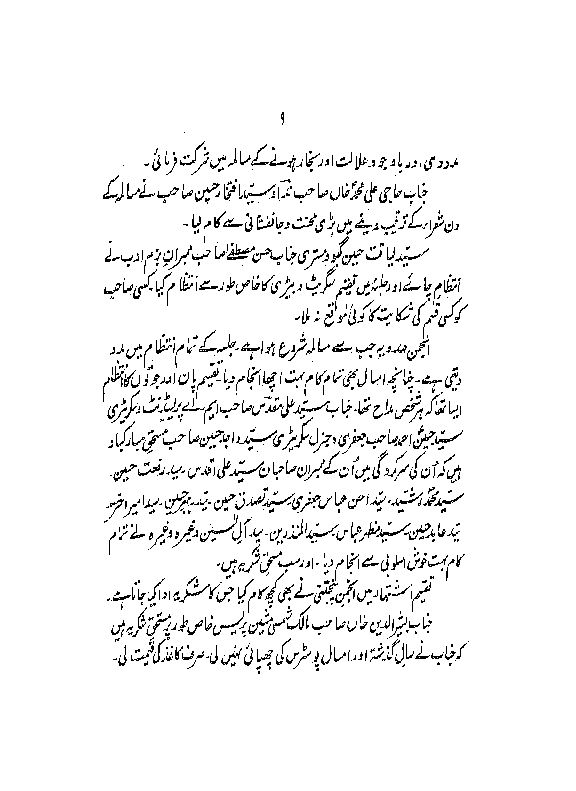 ۹
مدد دی، در باوجود علالت اور بخار ہونے کے مسالمہ میں شرکت فرمائی۔
جناب حاجی علی محمد خاں صاحب اور سید افتخار حسین صاحب نے مسالمہ کے
دن شعراء کے ترتیب دینے میں بڑی محنت و جانفشانی سے کام لیا۔
سید لیاقت حسین جناب حسن مصطفےٰ صاحب ممبران بزم ادب نے
انتظام چائے اور جلسہ میں تقسیم سگریٹ و بیڑی کا خاص طور سے انتظام کیا۔ کسی صاحب
کو کسی قسم کی شکایت کا کوئی موقع نہ ملا۔
انجمن جب سے مسالمہ شروع ہوا ہے جلسہ کے تمام انتظام میں مدد
دیتی ہے۔ چنانچہ امسال بھی تمام کام بہت اچھا انجام دیا۔ تقسیم پان اور جوتوں کا انتظام
ایسا تھا کہ ہر شخص مداح تھا۔ جناب سید علی مقدس صاحب ایم، اے پریسیڈنٹ و سکریٹری
سید حسین احمد صاحب جعفری و جنرل سکریٹری سید واجد حسین صاحب مستحق مبارکباد
ہیں کہ اُن کی سرکردگی میں اُن کے ممبران صاحبان سید علی اقدس۔ سید رفعت حسین۔
سید محمد رشید۔ سید احسن عباس جعفری سید تصدق حسین۔ سید۔ سید امیر اختر۔
سید عابد حسین سید مظہر عباس سید المنذرین۔ سید آل حسنین وغیرہ وغیرہ نے تمام
کام بہت خوش اسلوبی سے انجام دیا۔ اور سب مستحق شکریہ ہیں۔
تقسیم اشتہار میں انجمن نے بھی کچھ کام کیا جس کا شکریہ ادا کیا جاتا ہے۔
جناب بشیر الدین خاں صاحب مالک شمسی مشین پریس خاص طور پر مستحق شکریہ ہیں
کہ جناب نے سال گذشتہ اور امسال پوسٹرس کی چھپائی نہیں لی۔ صرف کاغذ کی قیمت لی۔